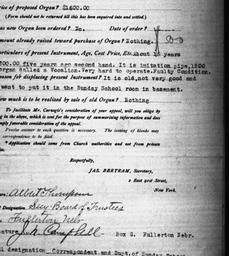 Price of proposed Organ? $1600.00
(Form should not be returned till this has been inquired into and settled.)
new Organ been ordered? No. Date of order?
amount already raised toward purchase of Organ? Nothing.
particulars of present Instrument, Age, Cost Price, Etc. about 15 years
700.00 five years ago second hand. It is imitation pipe, 1800
organ called a Vocalion. Very hard to operate. Faulty Condition.
for displacing present Instrument? It is old, not very good and
want to put it in the Sunday School room in basement.
much is to be realised by sale of old Organ? Nothing
To facilitate Mr. Carnegie's consideration of your appeal, will you oblige by
in the above, which is sent for the purpose of summarising information and does
imply favorable consideration of the appeal.
Precise answer to each question is necessary. The issuing of blanks may
correspondence to be filed.
Application should come from Church authorities and not from private
Respectfully,
JAS. BERTRAM, Secretary,
2 East 91st Street,
New York.
Albert Thompson
Designation. Secy Board of Trustees
Fullerton Nebr
J. W. Campbell Box G. Fullerton Nebr.
designation Correspondent and Supt. of Sunday